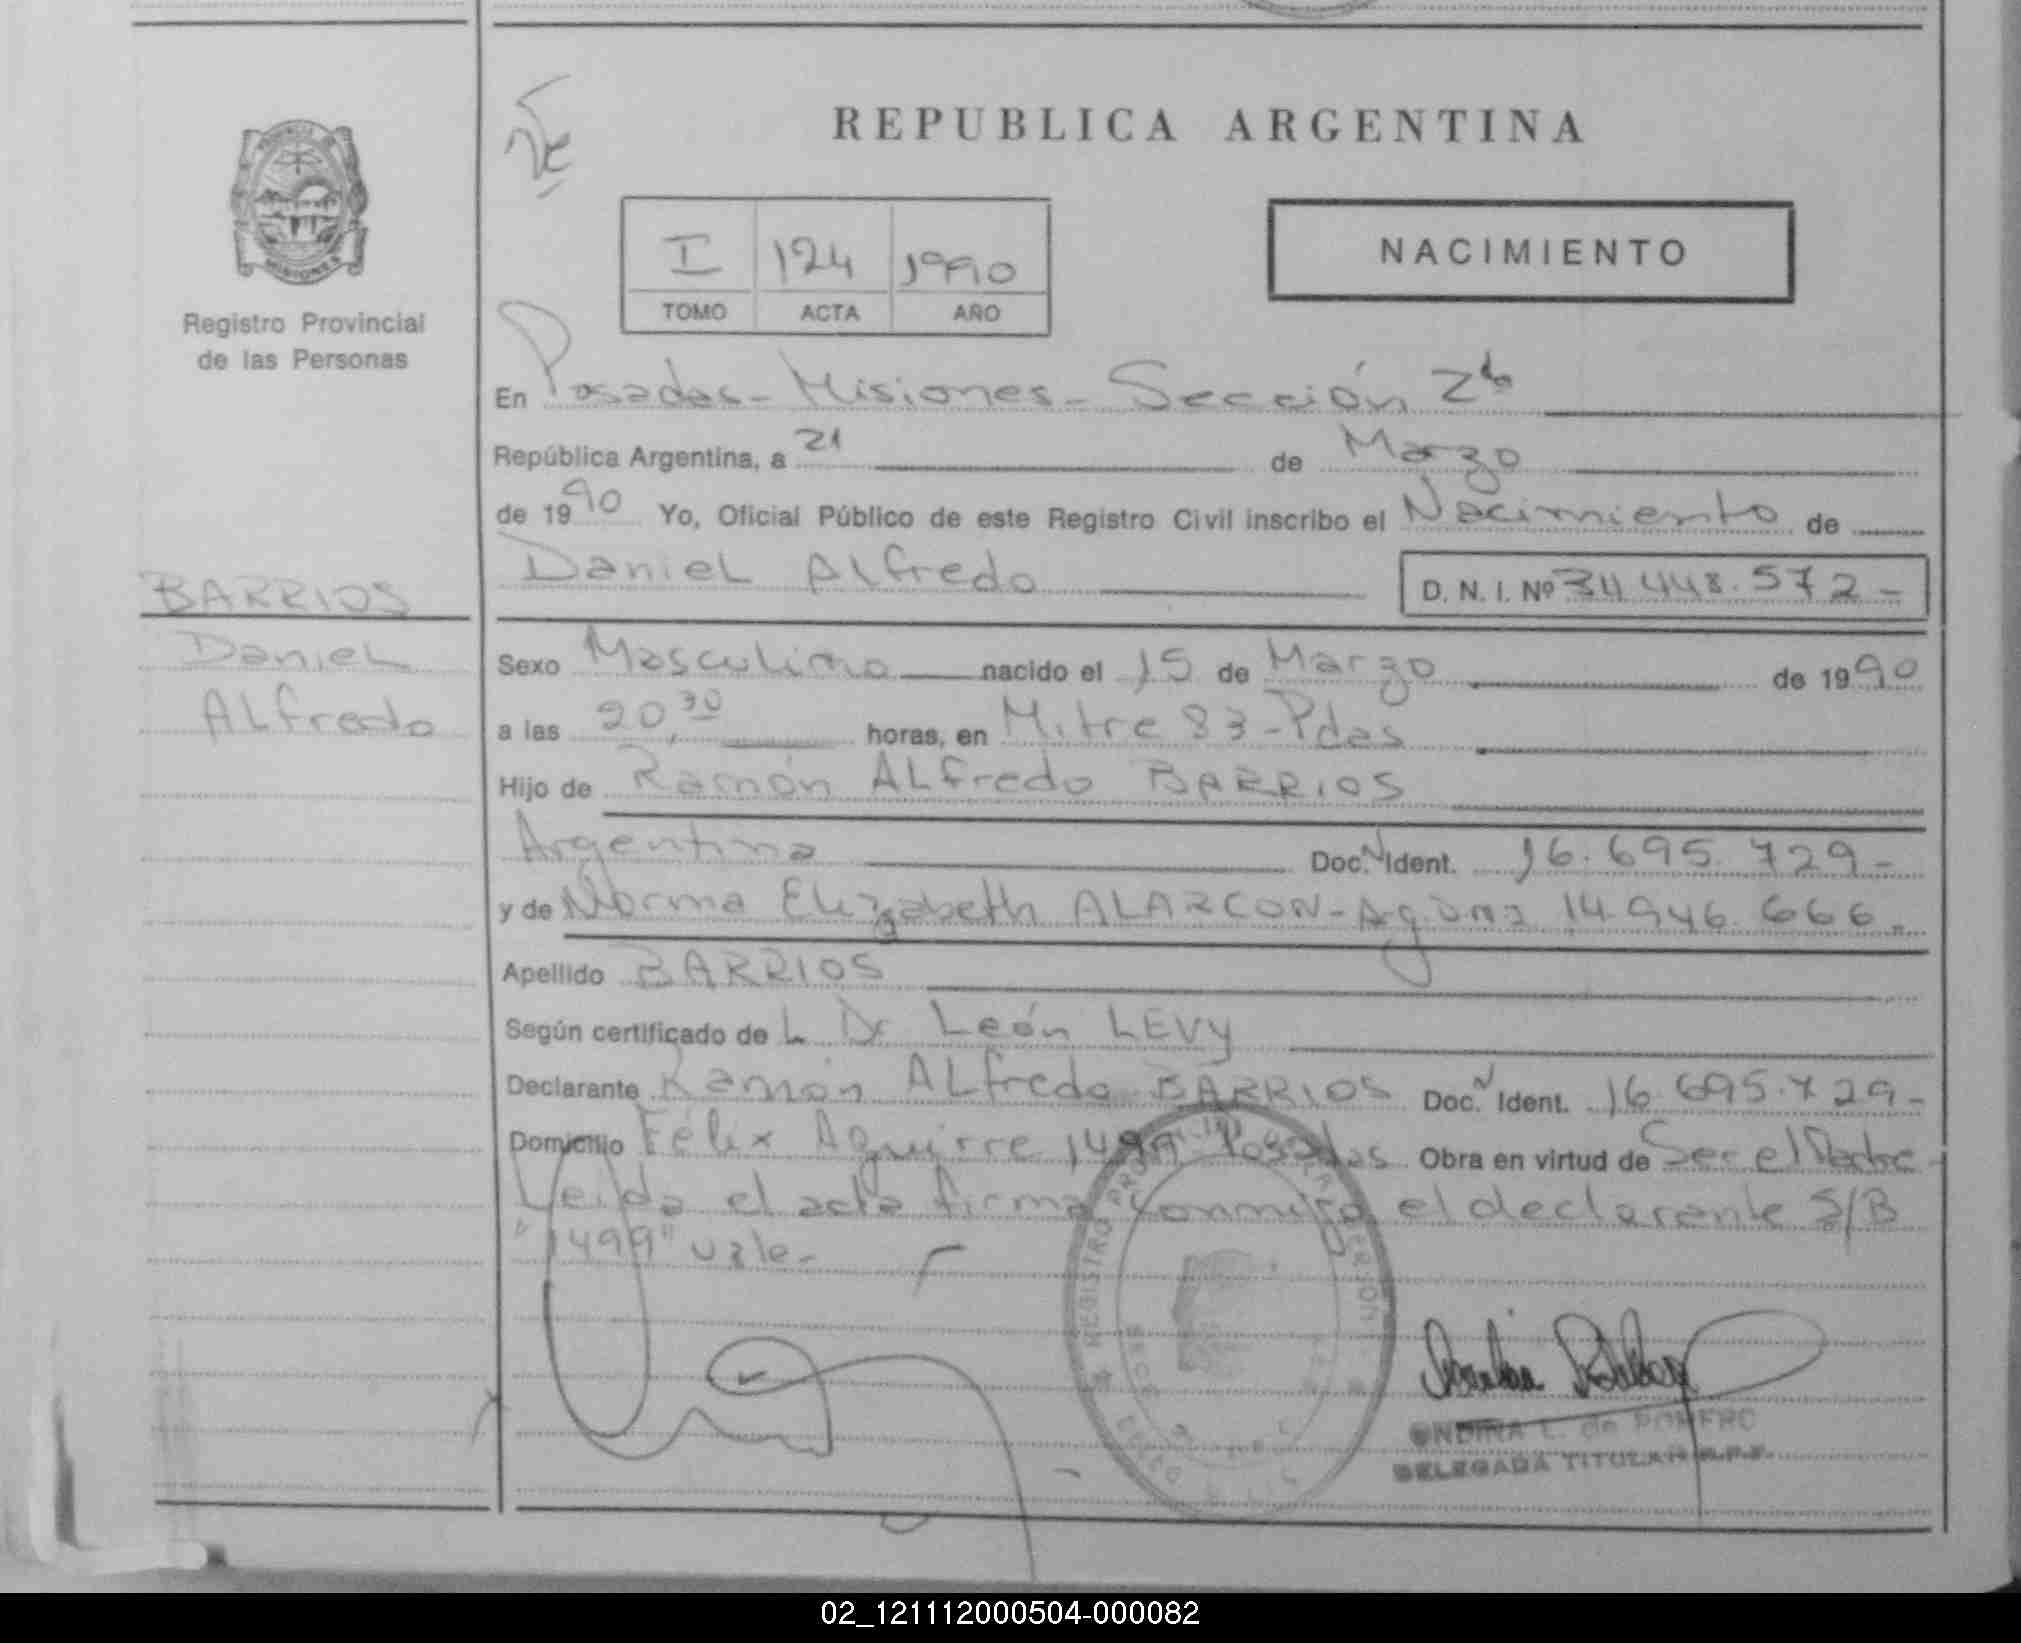 REPUBLICA ARGENTINA
I 124 1990
TOMO ACTA AÑO
NACIMIENTO
MISIONES
Registro Provincial
de las Personas
En Posadas - Misiones - Sección 2da
República Argentina, a 21 de Marzo
de 1990 Yo, Oficial Público de este Registro Civil inscribo el Nacimiento de
Daniel Alfredo
D. N. I. Nº 34.448.572-
BARRIOS
Daniel
Alfredo
Sexo Masculino nacido el 15 de Marzo de 1990
a las 20,30 horas, en Mitre 83 - Pdas
Hijo de Ramón Alfredo BARRIOS
Argentina Doc. N Ident. 16.695.729-
y de Norma Elizabeth ALARCON - Agüna 14.946.666.
Apellido BARRIOS
Según certificado de L Dr León LEVY
Declarante Ramón Alfredo BARRIOS Doc. N Ident. 16.695.729-
Domicilio Félix Aguirre 1499 Posadas Obra en virtud de Ser el Padre
Leida el acta firma conmigo el declarante S/B
"1499" vale-
REGISTRO
ONDINA L. de
DELEGADA TITULAR R.P.P.
02_121112000504-000082